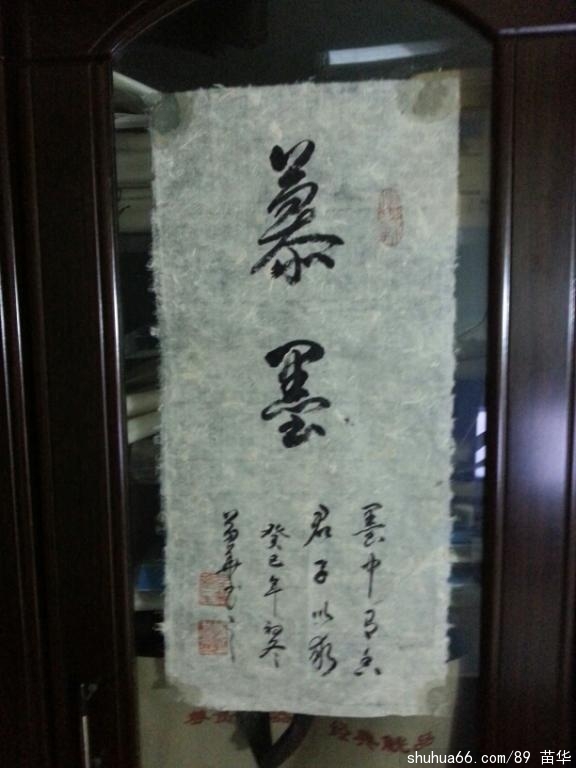 慕墨
墨中有香
君子以敬
癸巳年初冬
苗华书
经典
shuhua66.com/89 苗华